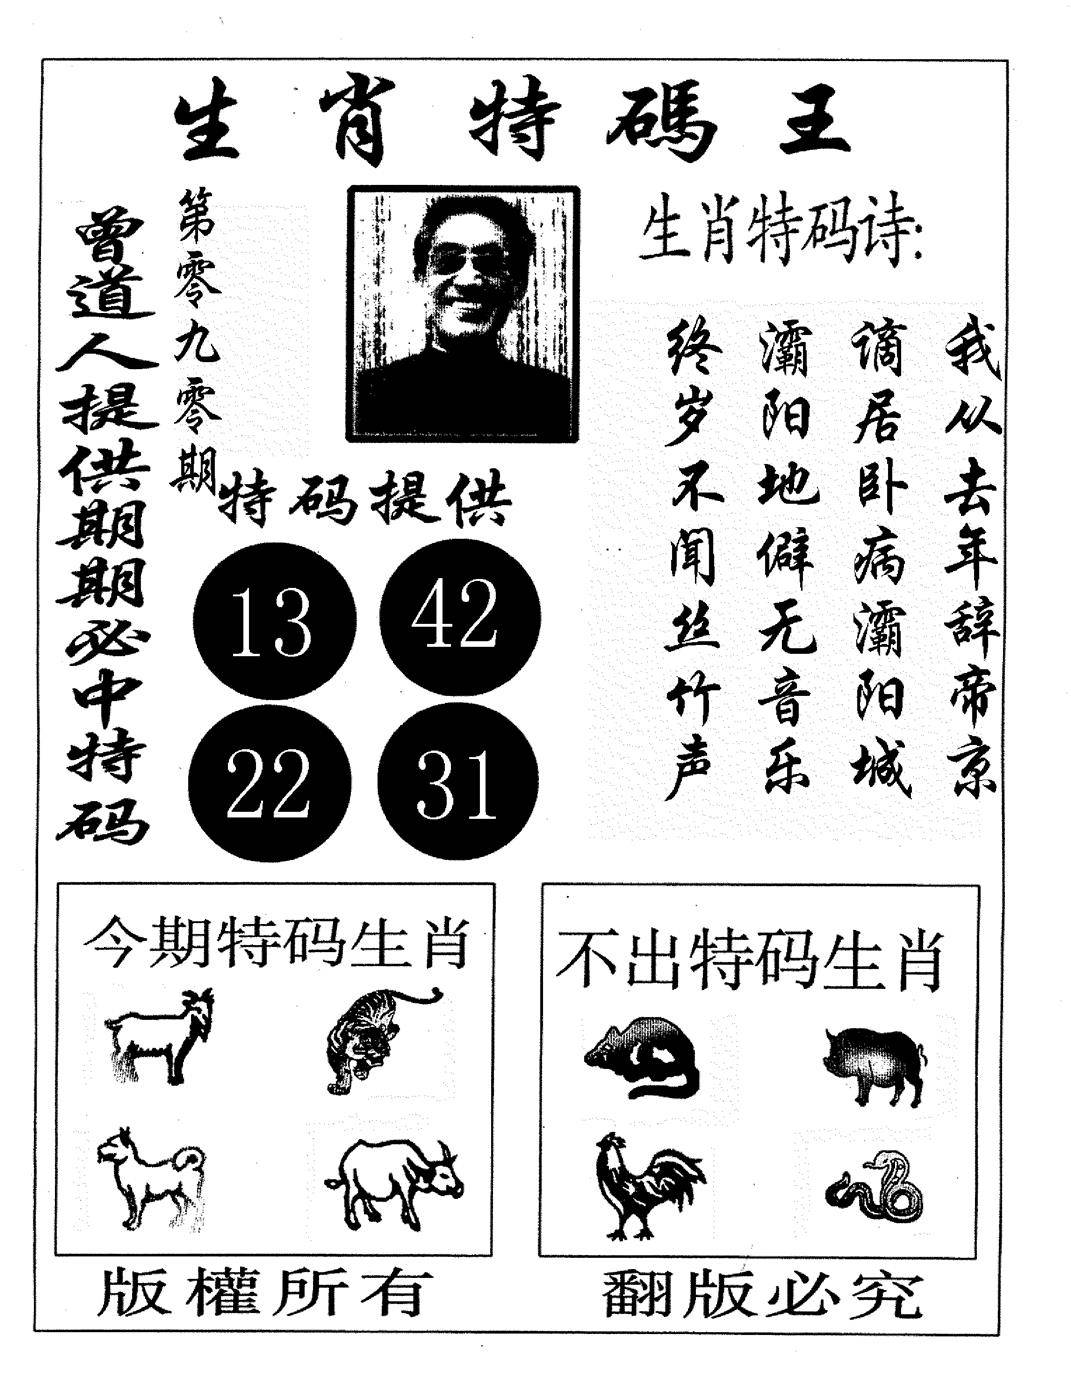 生肖特碼王
曾道人提供期期必中特码
第零九零期
生肖特码诗:
我从去年辞帝京
谪居卧病灞阳城
灞阳地僻无音乐
终岁不闻丝竹声
特码提供
13
42
22
31
今期特码生肖
不出特码生肖
版權所有
翻版必究